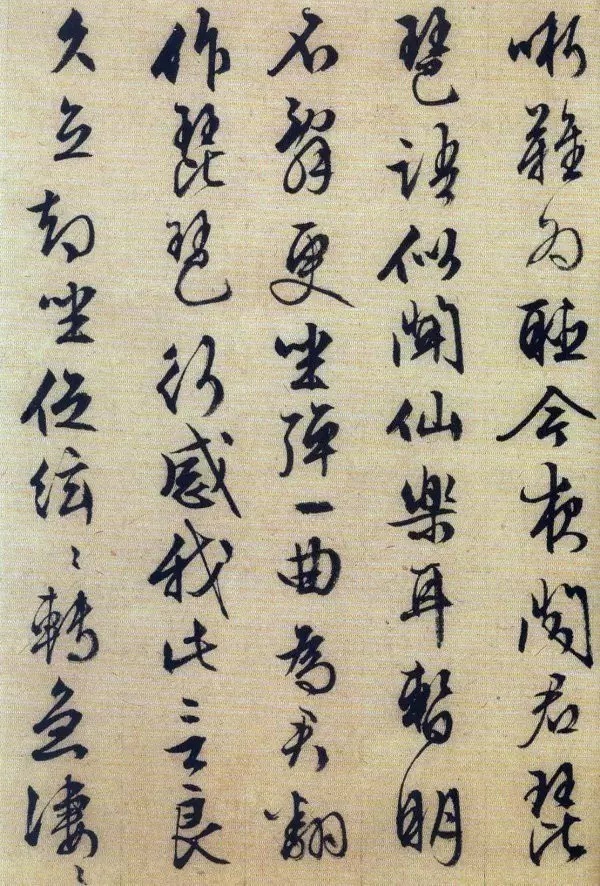 哳難為聽今夜聞君琵
琶語似聞仙樂耳暫明
不辭更坐彈一曲為君翻
作琵琶行感我此言良
久立却坐促絃〻轉急淒〻